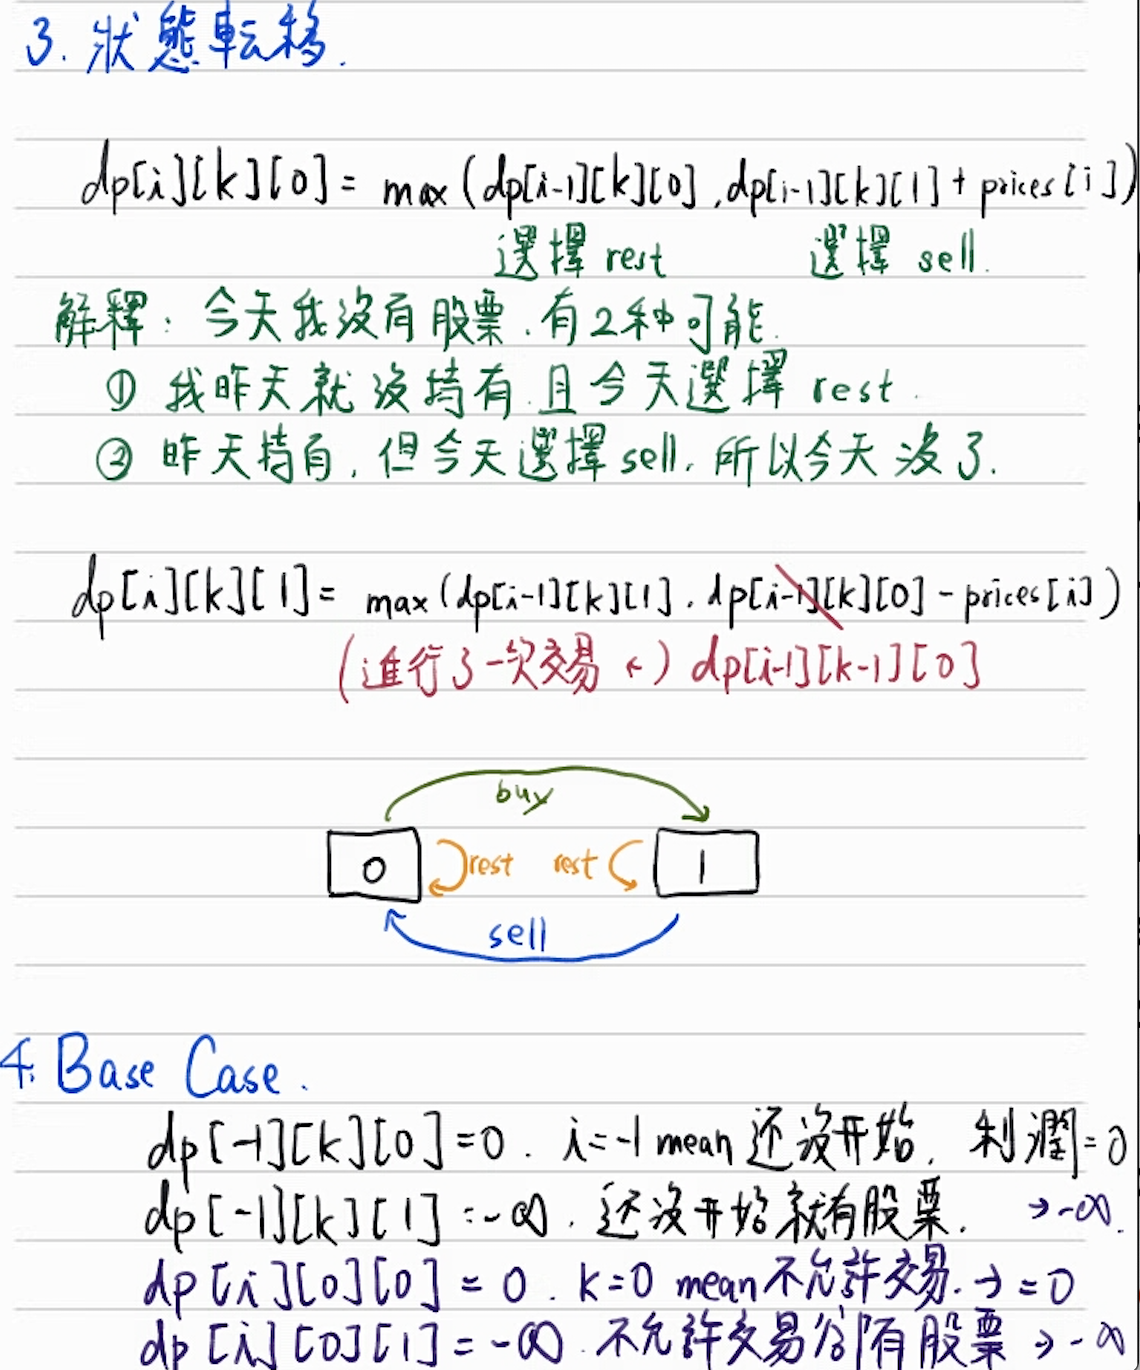 3. 狀態転移.
dp[i][k][0] = max (dp[i-1][k][0] , dp[i-1][k][1] + prices[i])
選擇 rest 選擇 sell.
解釋：今天我没有股票.有2种可能.
① 我昨天就没持有.且今天選擇 rest.
② 昨天持有,但今天選擇 sell.所以今天没了.
dp[i][k][1] = max (dp[i-1][k][1] . dp[i-1][k][0] - prices[i])
(進行了一次交易 ←) dp[i-1][k-1][0]
buy
0 rest rest 1
sell
4. Base Case.
dp[-1][k][0] = 0 . i=-1 mean 还没开始. 利潤=0
dp[-1][k][1] = -∞ . 还没开始就有股票. → -∞.
dp[i][0][0] = 0 . k=0 mean 不允許交易. → =0
dp[i][0][1] = -∞ . 不允許交易 有股票 → -∞